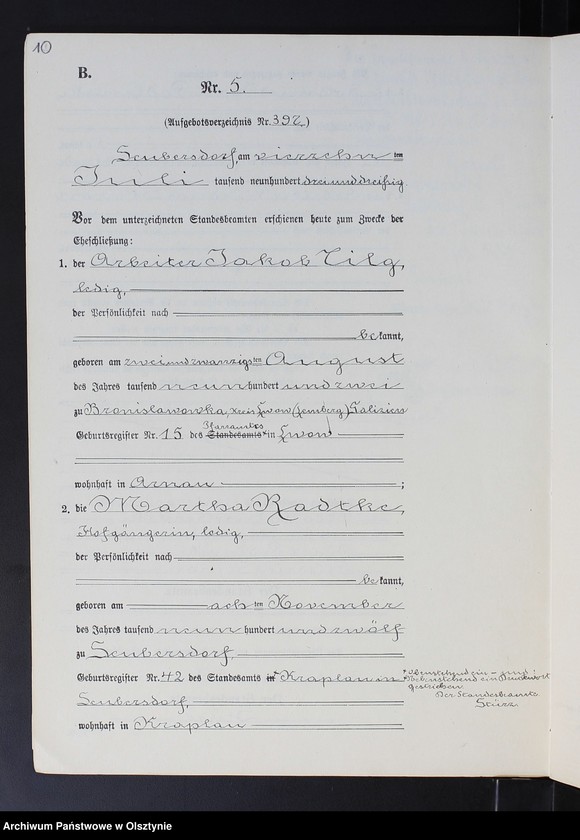 10
B.
Nr. 5.
(Aufgebotsverzeichnis Nr. 392.)
Seubersdorf, am vierzehnten
Juli tausend neunhundert dreiunddreißig.
Vor dem unterzeichneten Standesbeamten erschienen heute zum Zwecke der
Eheschließung:
1. der Arbeiter Jakob Tilg,
ledig,
der Persönlichkeit nach
bekannt,
geboren am zweiundzwanzigsten August
des Jahres tausend neunhundert und zwei
zu Bronislawowka, Kreis Lwow (Lemberg) Galizien
Geburtsregister Nr. 15 des Pfarramtes Standesamts in Lwow
wohnhaft in Arnau ;
2. die Martha Radtke,
Hofgängerin, ledig,
der Persönlichkeit nach
bekannt,
geboren am achten November
des Jahres tausend neunhundert und zwölf
zu Seubersdorf,
Geburtsregister Nr. 42 des Standesamts in Kraplau in
Seubersdorf,
wohnhaft in Kraplau
ein Druckwort
gestrichen
Der Standesbeamte
Archiwum Państwowe w Olsztynie